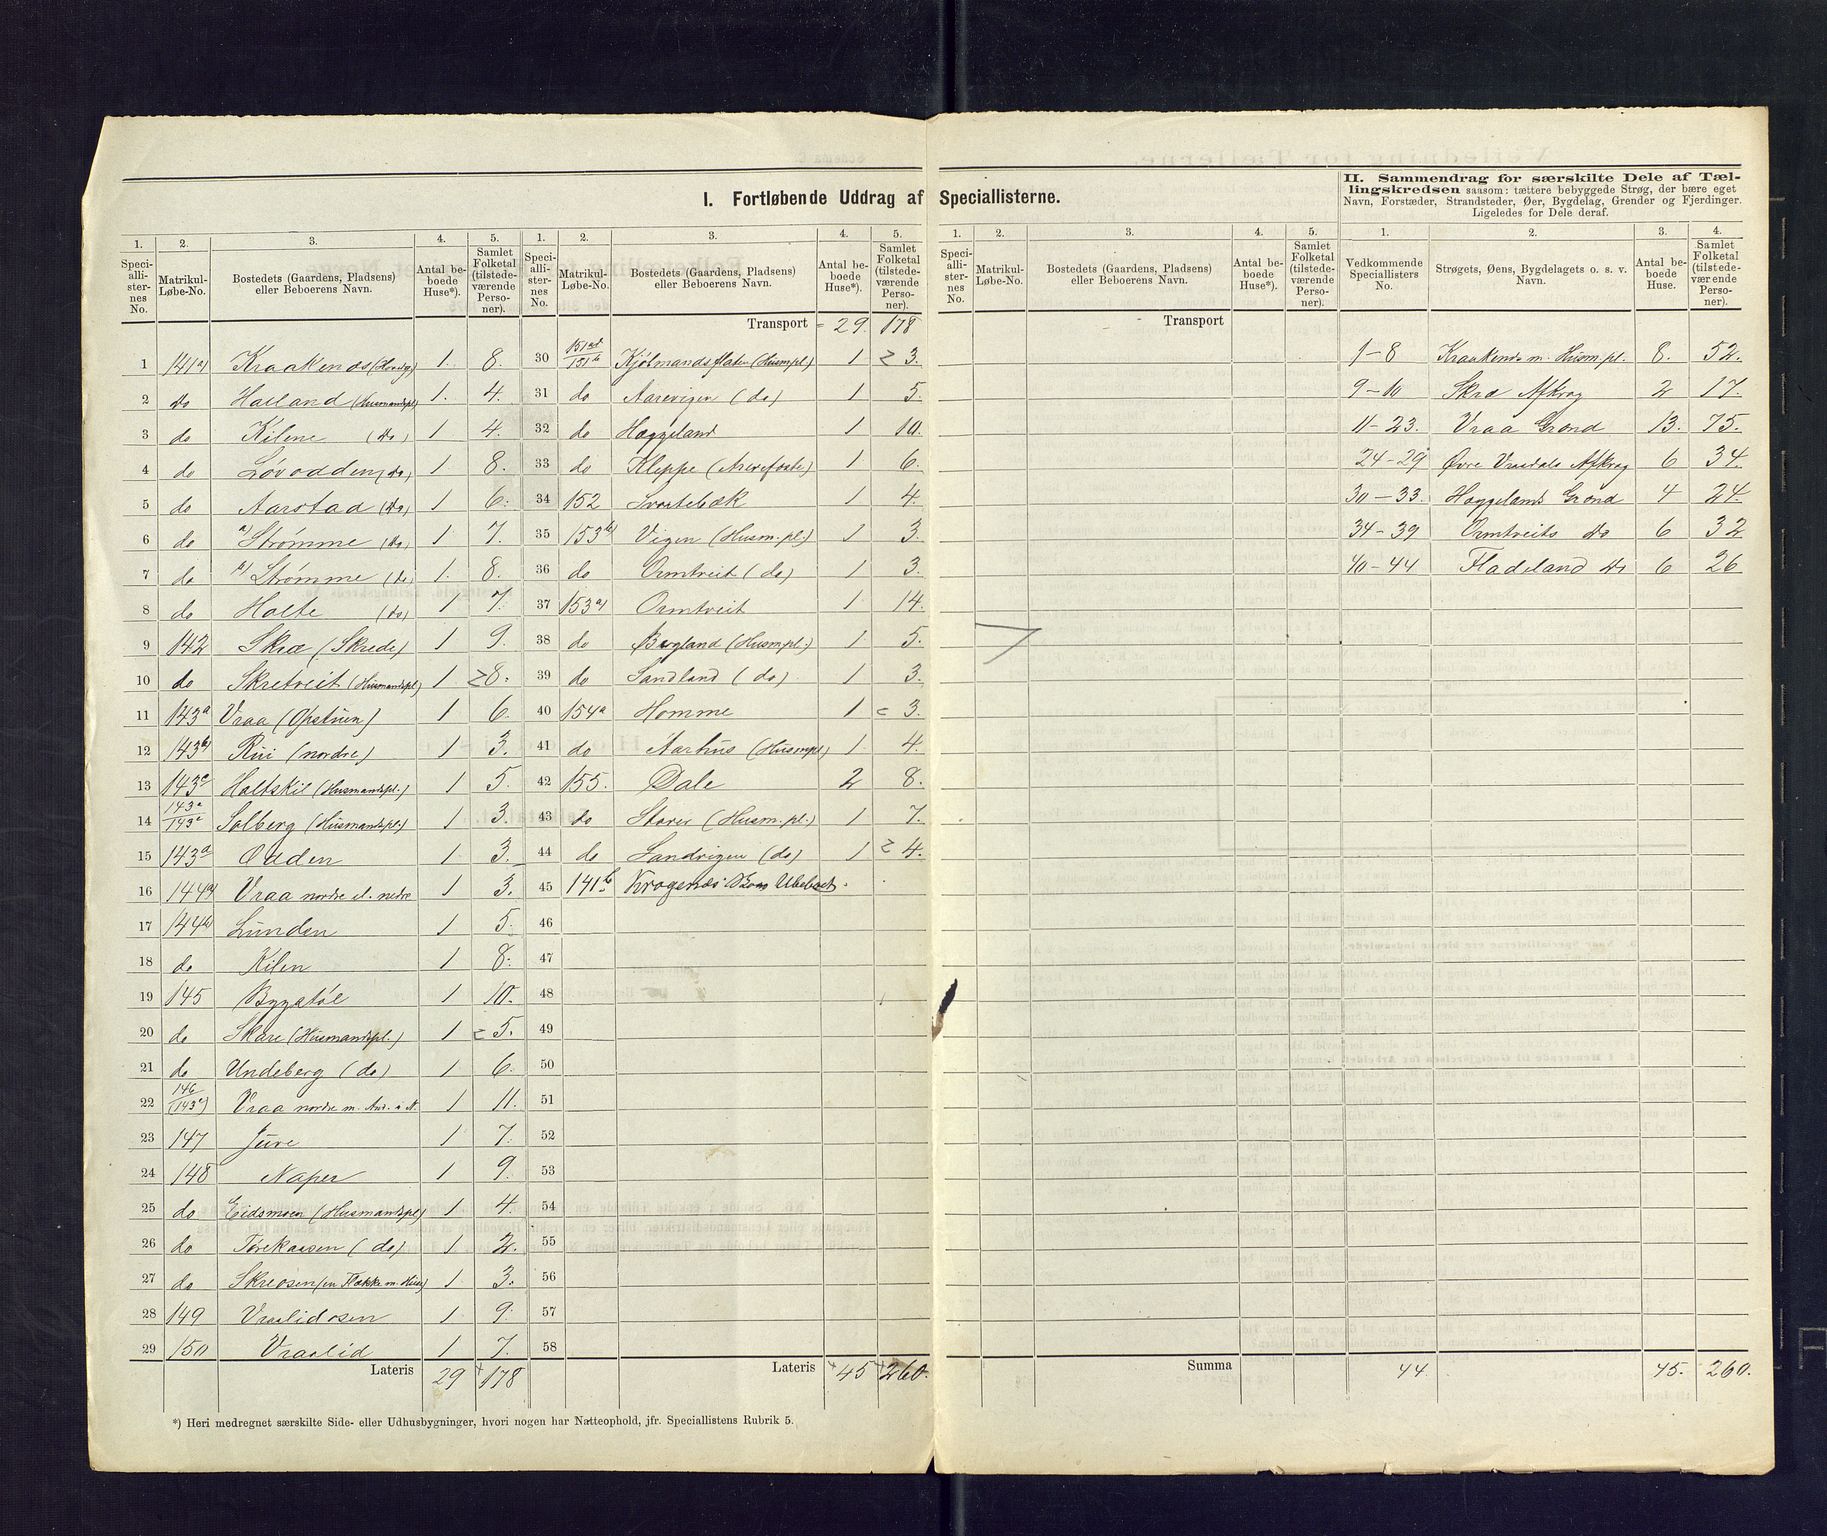 I. Fortløbende Uddrag af Speciallisterne.
II. Sammendrag for særskilte Dele af Tællingskredsen saasom: tættere bebyggede Strøg, der bære eget Navn, Forstæder, Strandsteder, Øer, Bygdelag, Grender og Fjerdinger. Ligeledes for Dele deraf.
1. 2. 3. 4. 5. 1. 2. 3. 4. 5. 1. 2. 3. 4. 5. 1. 2. 3. 4.
Speciallisternes No. Matrikul-Løbe-No. Bostedets (Gaardens, Pladsens) eller Beboerens Navn. Antal beboede Huse*). Samlet Folketal (tilstedeværende Personer).
Speciallisternes No. Matrikul-Løbe-No. Bostedets (Gaardens, Pladsens) eller Beboerens Navn. Antal beboede Huse*). Samlet Folketal (tilstedeværende Personer).
Speciallisternes No. Matrikul-Løbe-No. Bostedets (Gaardens, Pladsens) eller Beboerens Navn. Antal beboede Huse*). Samlet Folketal (tilstedeværende Personer).
Vedkommende Speciallisters No. Strøgets, Øens, Bygdelagets o. s. v. Navn. Antal beboede Huse. Samlet Folketal (tilstedeværende Personer).
1 141a) Kraakenes 1. 8.
2 do Halland (Husmandspl) 1. 4.
3 do Kilene (do) 1 4.
4 do Løvodden (do) 1 8.
5 do Aarstad (do) 1 6.
6 do a) Strømme (do) 1 7.
7 do Strømme (do) 1. 8.
8 do Holte (do) 1 7.
9 142 Skræ (Skrede) 1 9.
10 do Skretveit (Husmandspl) 1 8.
11 143a Vraa (Opstuen) 1 6.
12 143b) Rui (nordre) 1 3.
13 143c Holtskil (Husmandspl.) 1 5.
14 143a/143c Solberg (Husmandspl) 1 3.
15 143a Odden 1 3.
16 144a) Vraa nordre el. nedre 1 3.
17 144b) Lunden 1 5.
18 do Kilen 1 8.
19 145 Bygstøl 1 10.
20 do Skare (Husmandspl.) 1 5.
21 do Undeberg (do) 1 6.
22 146 (143c) Vraa nordre m. 1 11.
23 147 Jure 1 7.
24 148 Naper 1 9.
25 do Eidsmoen (Husmandspl) 1 4.
26 do Tørekaasen (do) 1 2.
27 do Skreosen (en Flække m. Huse) 1 3.
28 149 Vraalidosen 1 9.
29 150 Vraalid 1 7.
Lateris 29 178
Transport 29. 178
30 151b Kjølmandsflaten (Husmpl) 1 3.
31 do Aarevigen (do) 1 5.
32 do Haggeland 1 10.
33 do Kleppe 1 6.
34 152 Svartebæk 1 4.
35 153b) Vigen (Husm.pl.) 1 3.
36 do Ormtveit (do) 1 3.
37 153a) Ormtveit 1 14.
38 do Bergland (Husmpl.) 1 5.
39 do Sandland (do) 1 3.
40 154a Homme 1 3.
41 do Aarhus (Husmpl) 1. 4.
42 155. Dale 2 8.
43 do (Husm.pl.) 1 7.
44 do Sandvigen (do) 1 4.
45 141b Krogenes Ubeboet.
46
47
48
49
50
51
52
53
54
55
56
57
58
Lateris 45 260.
Transport
Summa
1-8 Kraakenes m. Husm.pl. 8. 52.
9-10 Skræ Afkrog 2 17.
11-23. Vraa Grænd 13. 75.
24-29 Øvre Vraadals Afkrog 6 34
30-33. Haggelands Grænd 4 24.
34-39 Ormtveits do 6 32
40-44 Fladeland do 6 26
44 45. 260.
*) Heri medregnet særskilte Side- eller Udhusbygninger, hvori nogen har Natteophold, jfr. Speciallistens Rubrik 5.